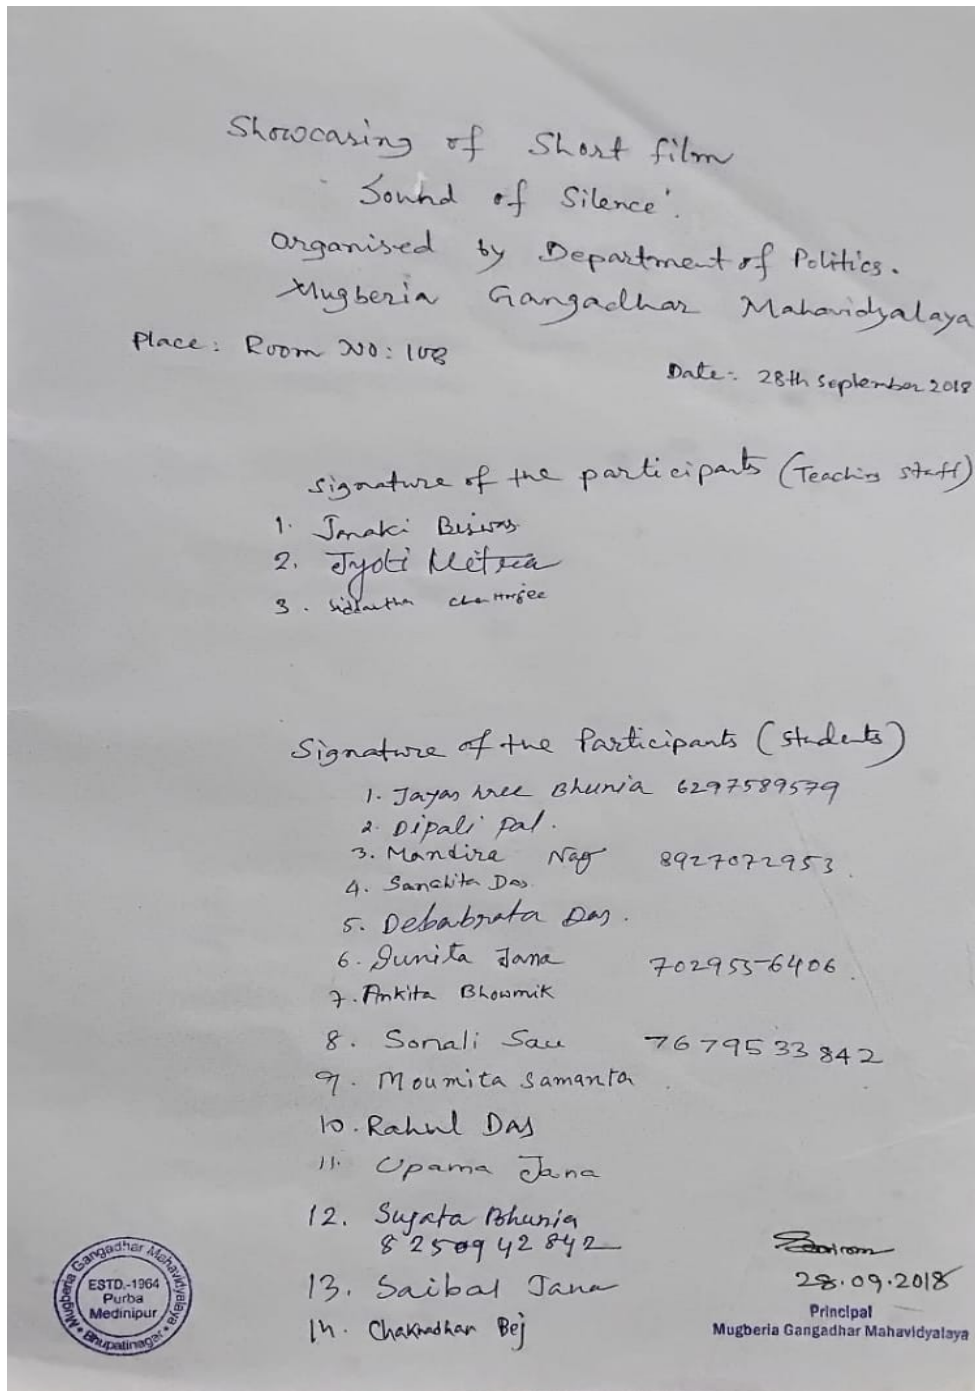 Showcasing of Short film
'Sound of Silence'.
Organised by Department of Politics.
Mugberia Gangadhar Mahavidyalaya
Place: Room No: 108
Date:- 28th September 2018
Signature of the participants (Teaching staff)
1. Janaki Biswas
2. Jyoti Mitra
3. Siddartha Chatterjee
Signature of the Participants (Students)
1. Jayashree Bhunia 6297589579
2. Dipali Pal.
3. Mandira Nag 8927072953.
4. Sanchita Das.
5. Debabrata Das.
6. Sunita Jana 7029556406.
7. Ankita Bhowmik
8. Sonali Sau 7679533842
9. Moumita Samanta.
10. Rahul Das
11. Upama Jana
12. Sujata Bhunia
8250942842
13. Saibal Jana
14. Chakradhar Bej
Mugberia Gangadhar Mahavidyalaya
ESTD.-1964
Purba
Medinipur
Bhupatinagar
28.09.2018
Principal
Mugberia Gangadhar Mahavidyalaya